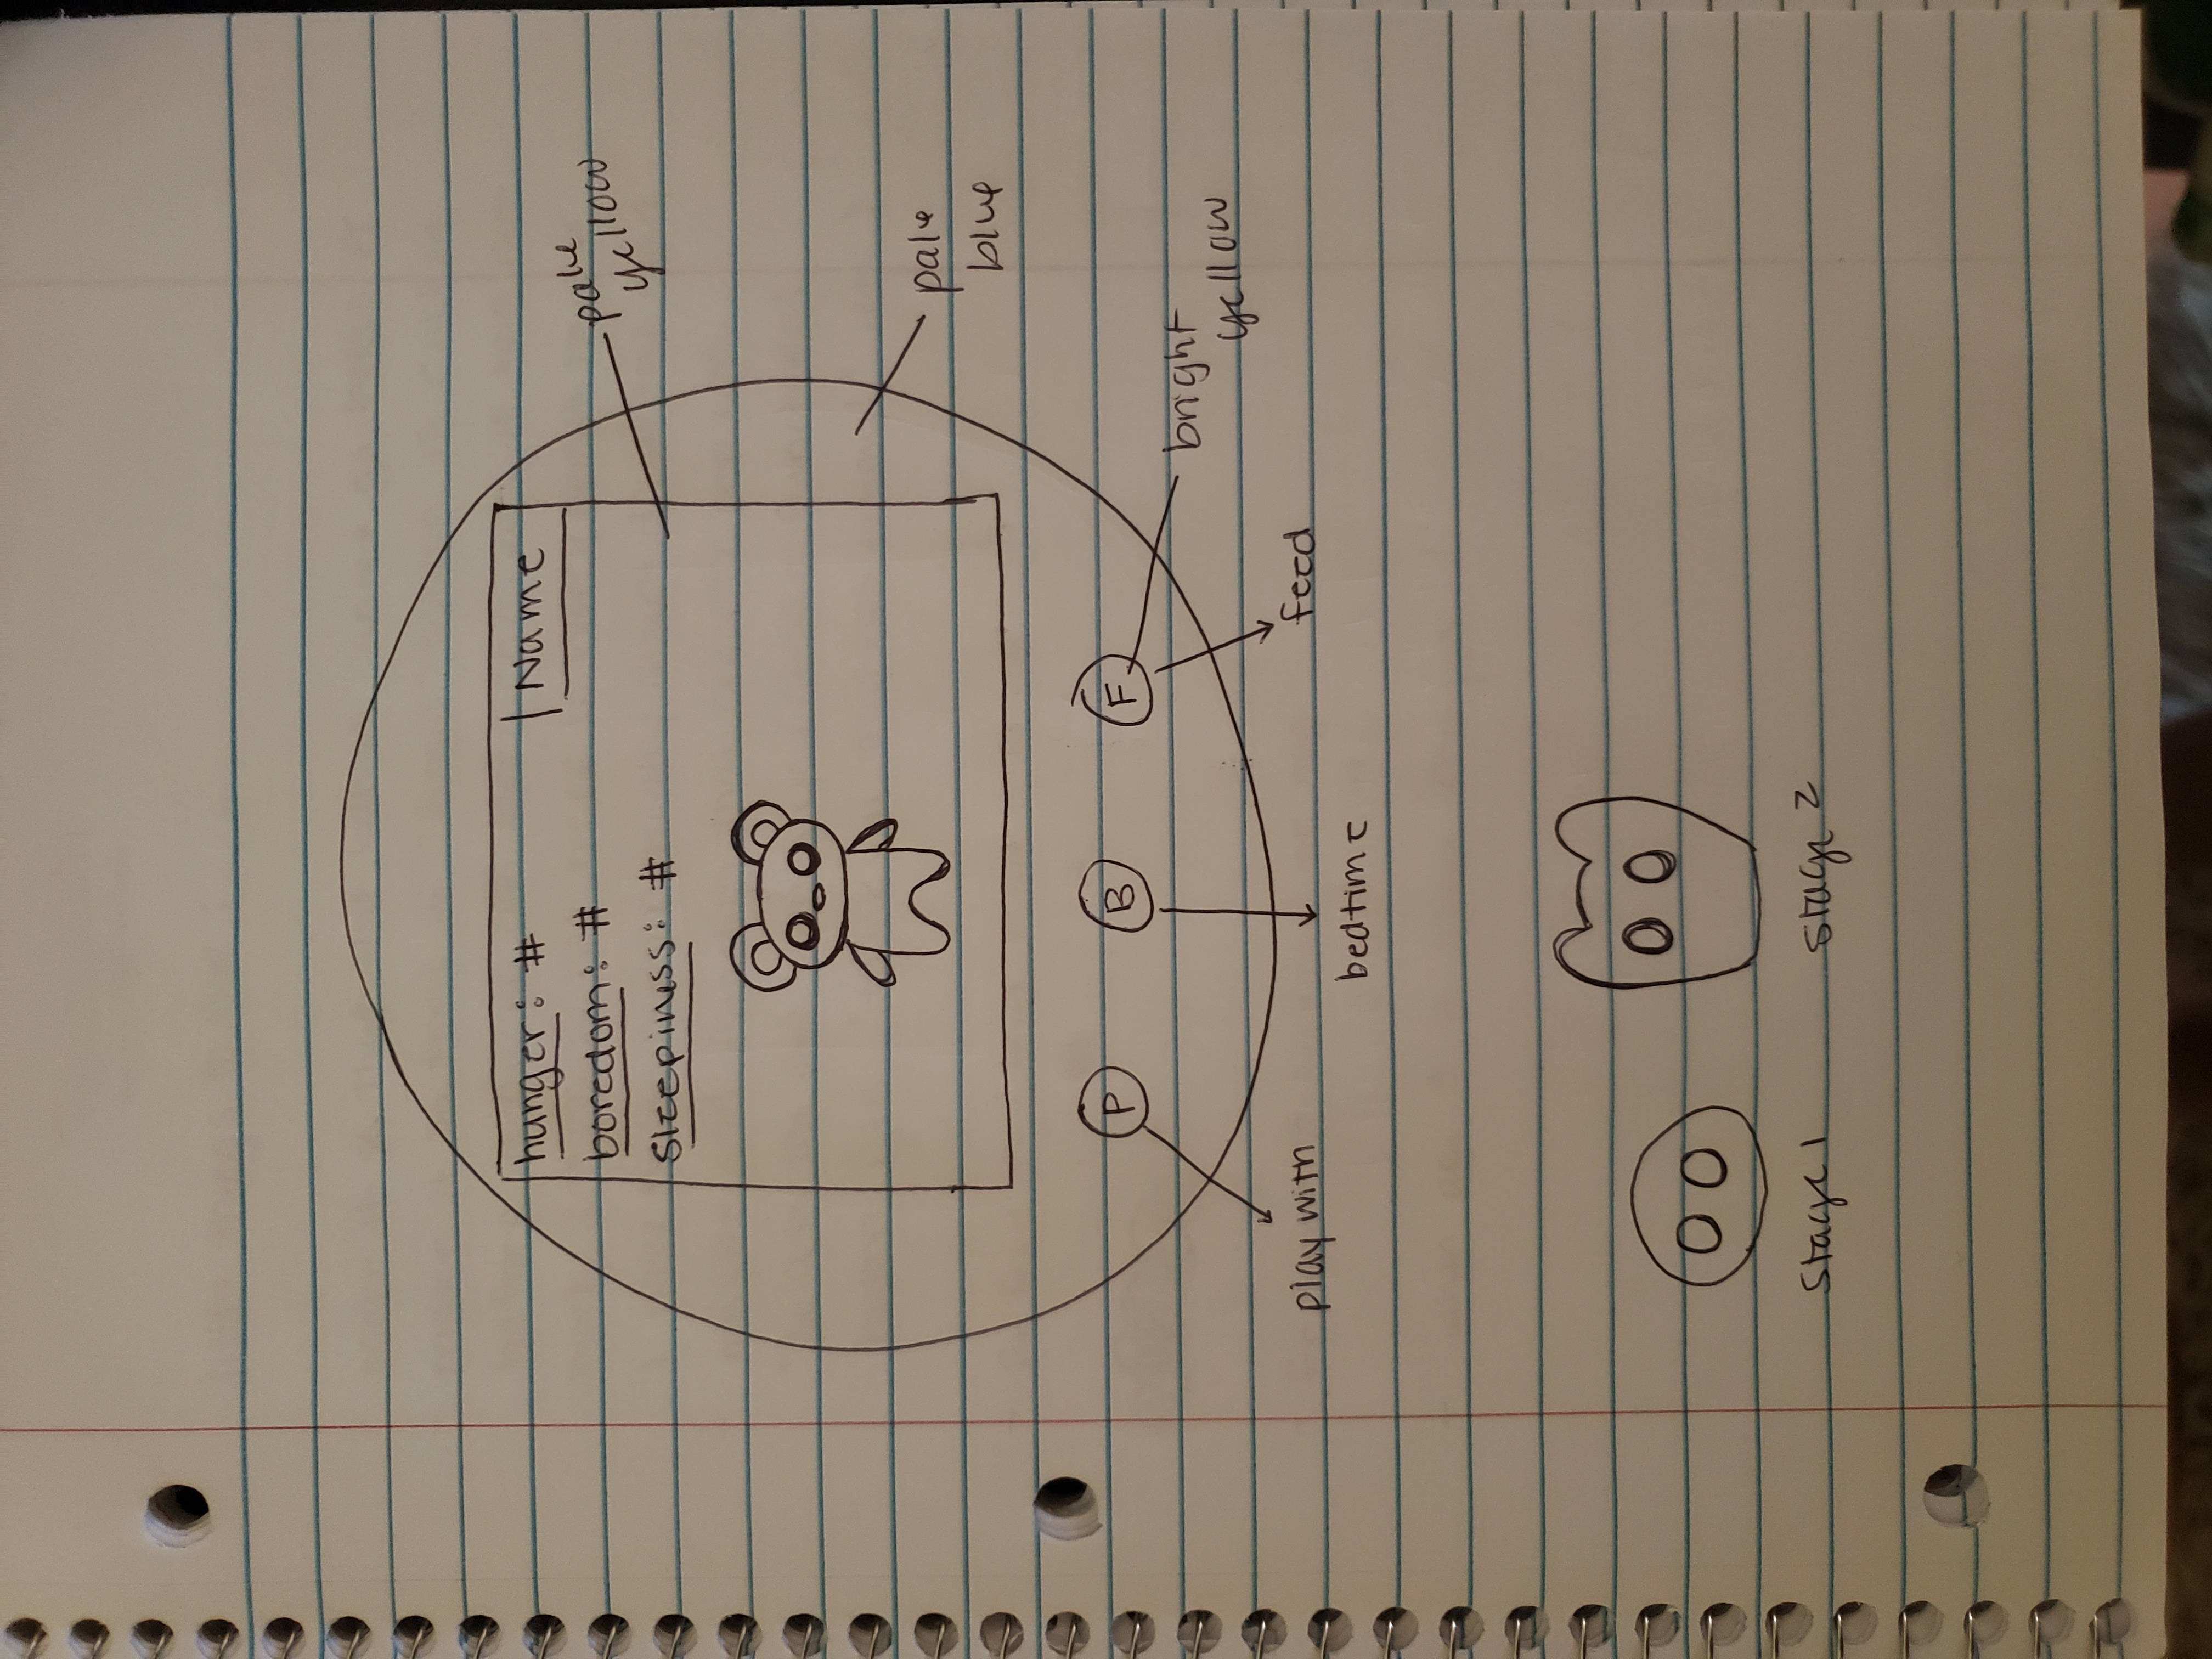 hunger: #
Name
boredom: #
sleepiness: #
pale
yellow
pale
blue
P
B
F
bright
yellow
play with
bedtime
feed
stage 1
stage 2